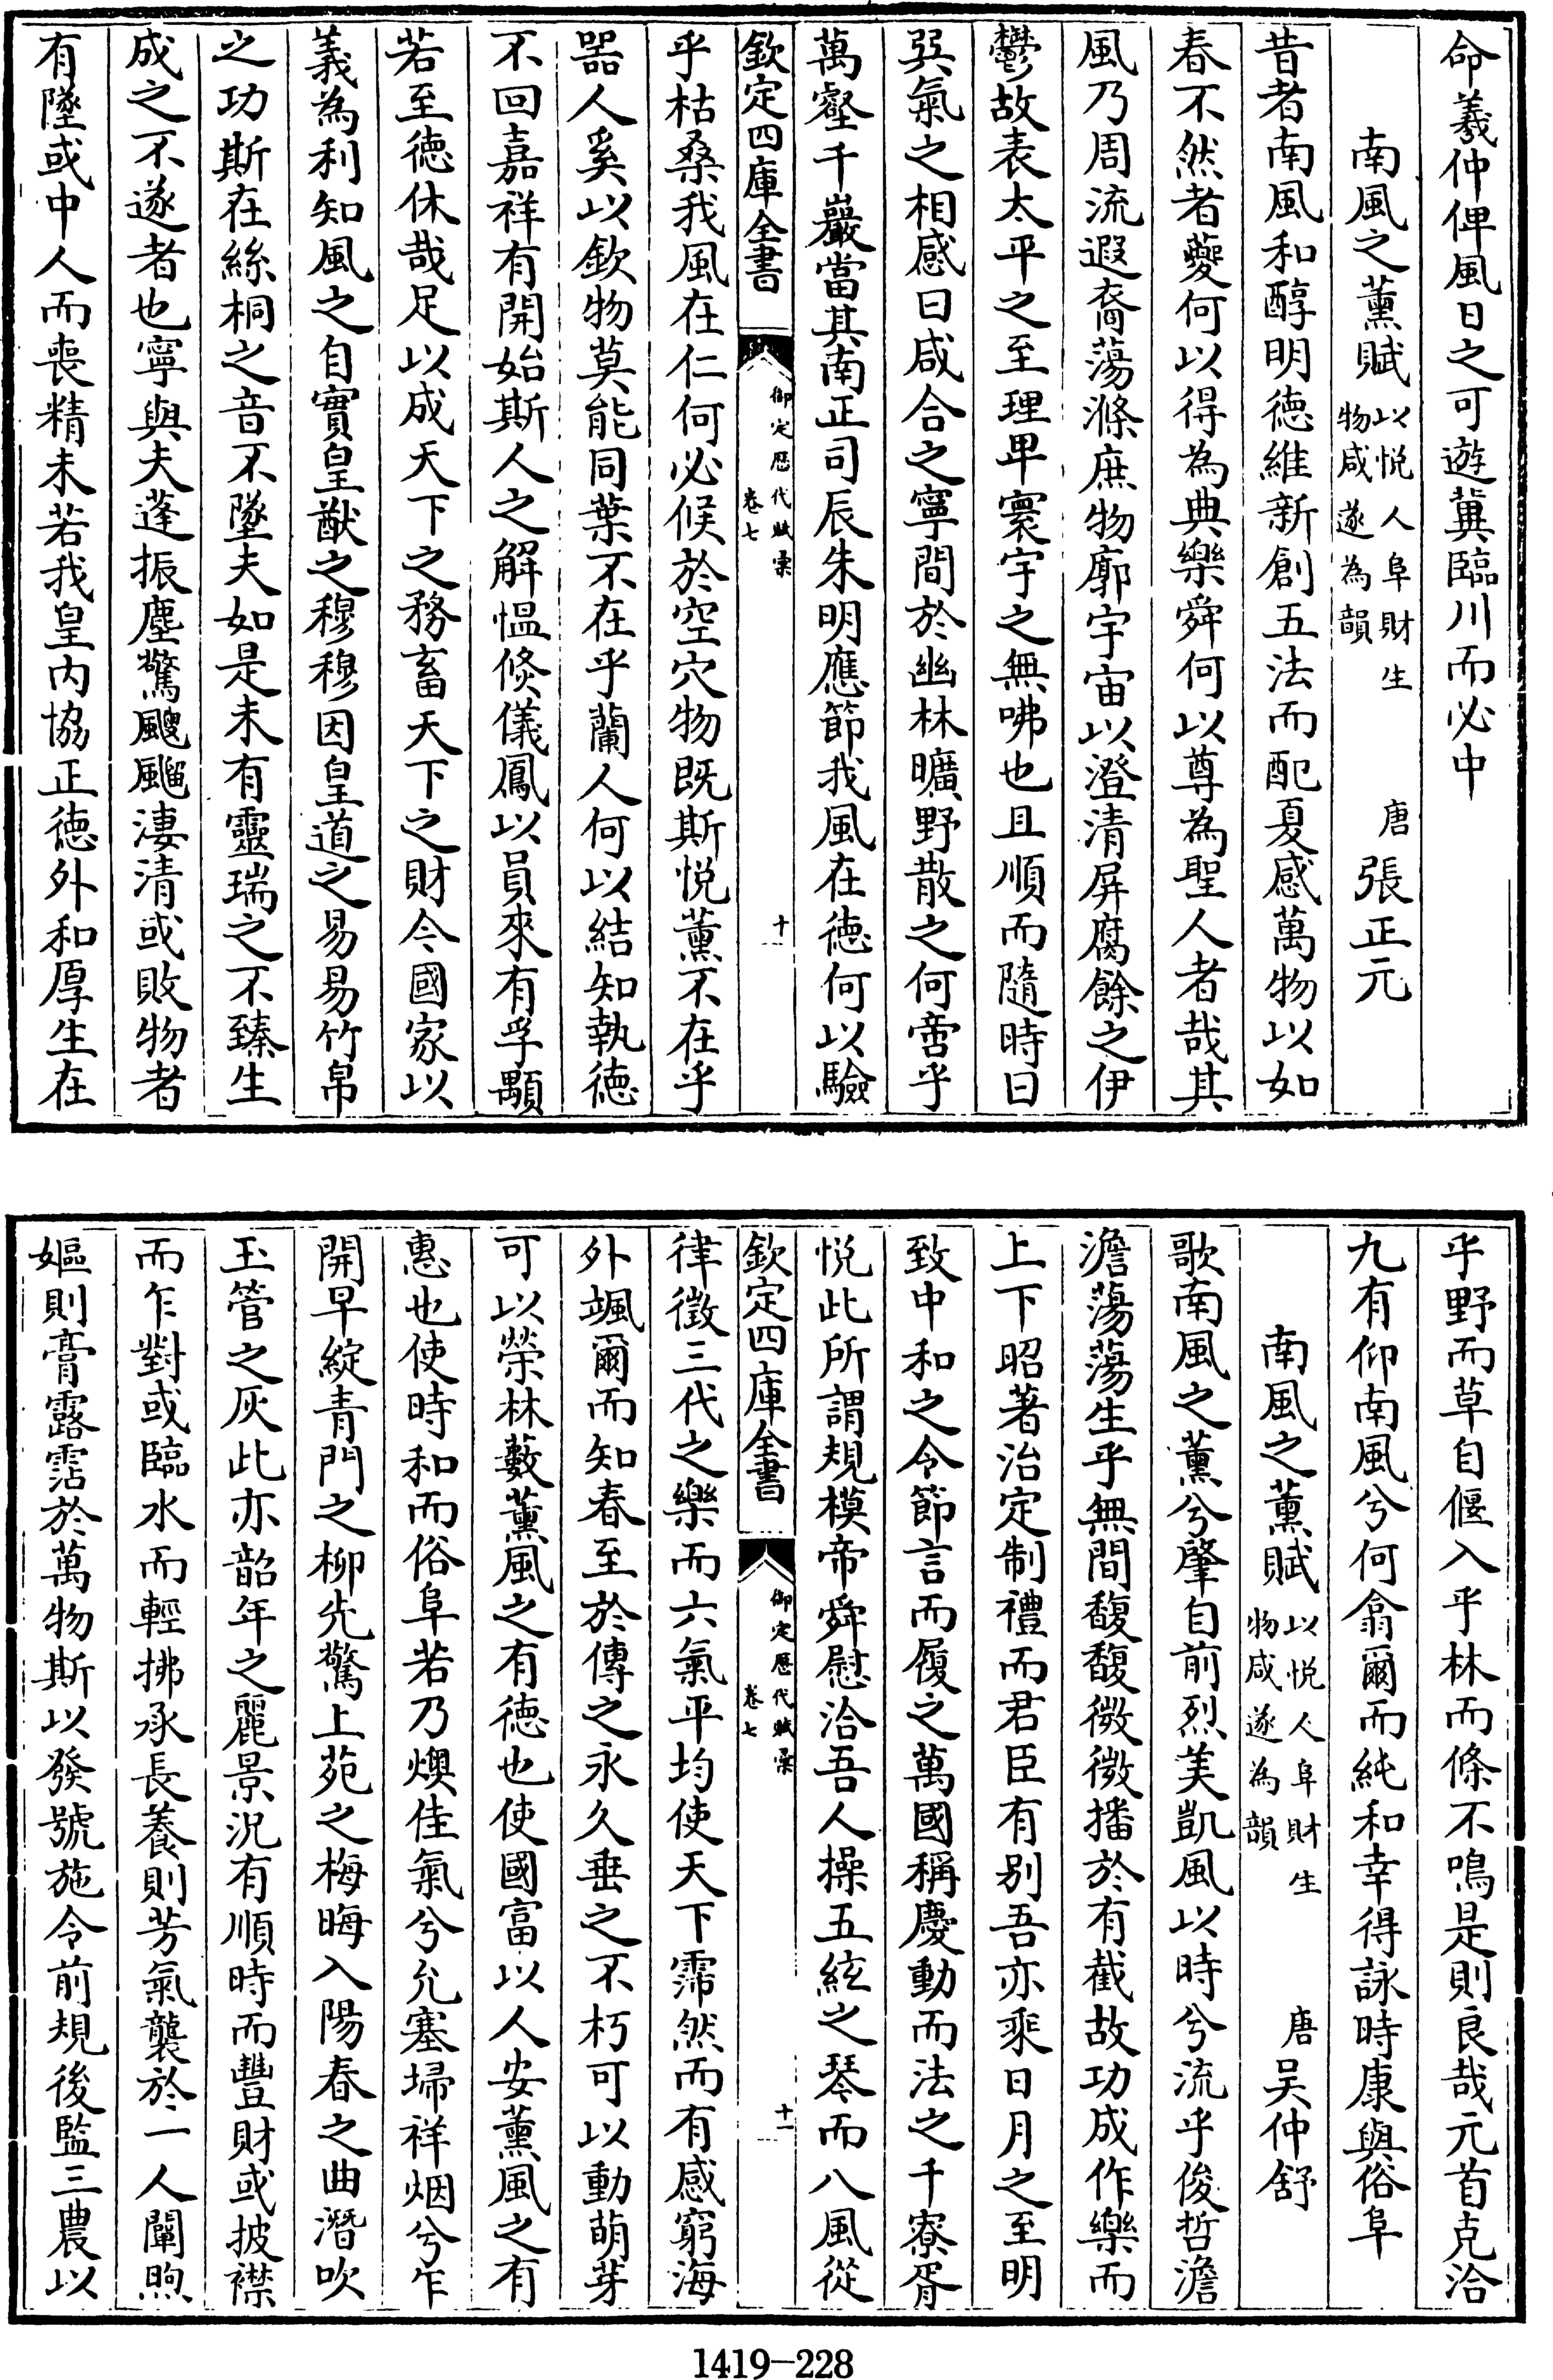 命羲仲俾風日之可遊冀臨川而必中
南風之薰賦 以悅人阜財生物咸遂為韻 唐 張正元
昔者南風和醇明德維新創五法而配夏感萬物以如
春不然者夔何以得為典樂舜何以尊為聖人者哉其
風乃周流遐裔蕩滌庶物廓宇宙以澄清屏腐餘之伊
鬱故表太平之至理畢寰宇之無咈也且順而隨時曰
巽氣之相感曰咸合之寧間於幽林曠野散之何啻乎
萬壑千巖當其南正司辰朱明應節我風在德何以驗
欽定四庫全書 御定歷代賦彙 卷七 十
乎枯桑我風在仁何必候於空穴物既斯悅薰不在乎
器人奚以欽物莫能同葉不在乎蘭人何以結知執德
不回嘉祥有開始斯人之解慍倏儀鳳以員來有孚顒
若至德休哉足以成天下之務畜天下之財今國家以
義為利知風之自實皇猷之穆穆因皇道之易易竹帛
之功斯在絲桐之音不墜夫如是未有靈瑞之不臻生
成之不遂者也寧與夫蓬振塵驚颼飀淒清或敗物者
有墜或中人而喪精未若我皇内協正德外和厚生在
乎野而草自偃入乎林而條不鳴是則良哉元首克洽
九有仰南風兮何翕爾而純和幸得詠時康與俗阜
南風之薰賦 以悅人阜財生物咸遂為韻 唐 吴仲舒
歌南風之薰兮肇自前烈美凱風以時兮流乎俊哲澹
澹蕩蕩生乎無間馥馥微微播於有截故功成作樂而
上下昭著治定制禮而君臣有别吾亦乘日月之至明
致中和之令節言而履之萬國稱慶動而法之千寮胥
悅此所謂規模帝舜慰洽吾人操五絃之琴而八風從
欽定四庫全書 御定歷代賦彙 卷七 十一
律徵三代之樂而六氣平均使天下霈然而有感窮海
外颯爾而知春至於傳之永久垂之不朽可以動萌芽
可以榮林藪薰風之有德也使國富以人安薰風之有
惠也使時和而俗阜若乃燠佳氣兮允塞埽祥烟兮乍
開早綻青門之柳先驚上苑之梅晦入陽春之曲潛吹
玉管之灰此亦韶年之麗景況有順時而豐財或披襟
而乍對或臨水而輕拂承長養則芳氣襲於一人闡煦
嫗則膏露霑於萬物斯以發號施令前規後監三農以
1419-228